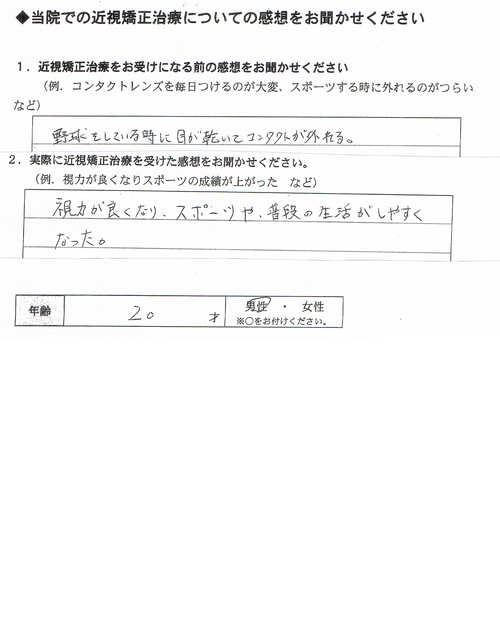 ◆当院での近視矯正治療についての感想をお聞かせください
１．近視矯正治療をお受けになる前の感想をお聞かせください
（例．コンタクトレンズを毎日つけるのが大変、スポーツする時に外れるのがつらい
など）
野球をしている時に目が乾いてコンタクトが外れる。
２．実際に近視矯正治療を受けた感想をお聞かせください。
（例．視力が良くなりスポーツの成績が上がった　など）
視力が良くなり、スポーツや、普段の生活がしやすく
なった。
年齢　20　才　男性　・　女性
※○をお付けください。